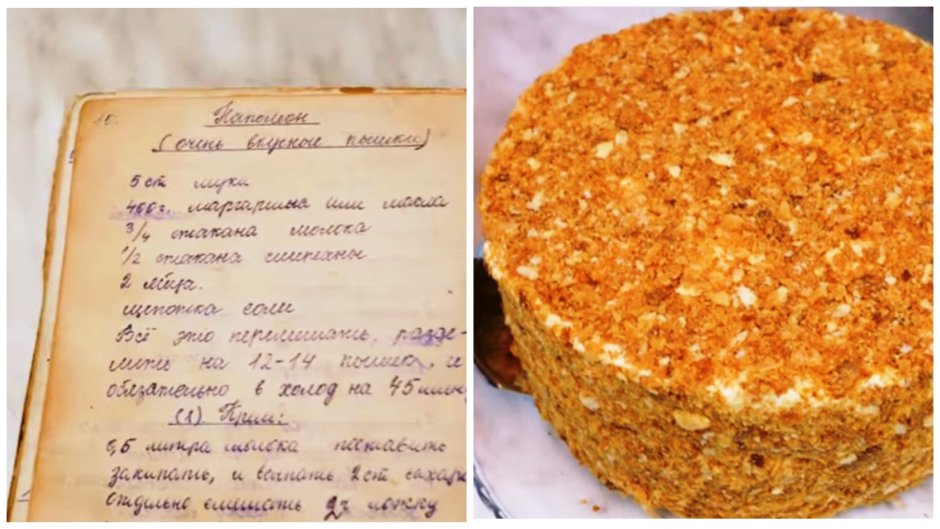 15.
Наполеон
(очень вкусные пышки)
5 ст муки
400 г. маргарина или масла
3/4 стакана молока
1/2 стакана сметаны
2 яйца.
щепотка соли
Всё это перемешать, разде-
лить на 12-14 пышек и
обязательно в холод на 45 мин
(1). Крем:
0,5 литра молока поставить
закипать, и всыпать 2 ст. сахара
Отдельно смешать 2 ложку